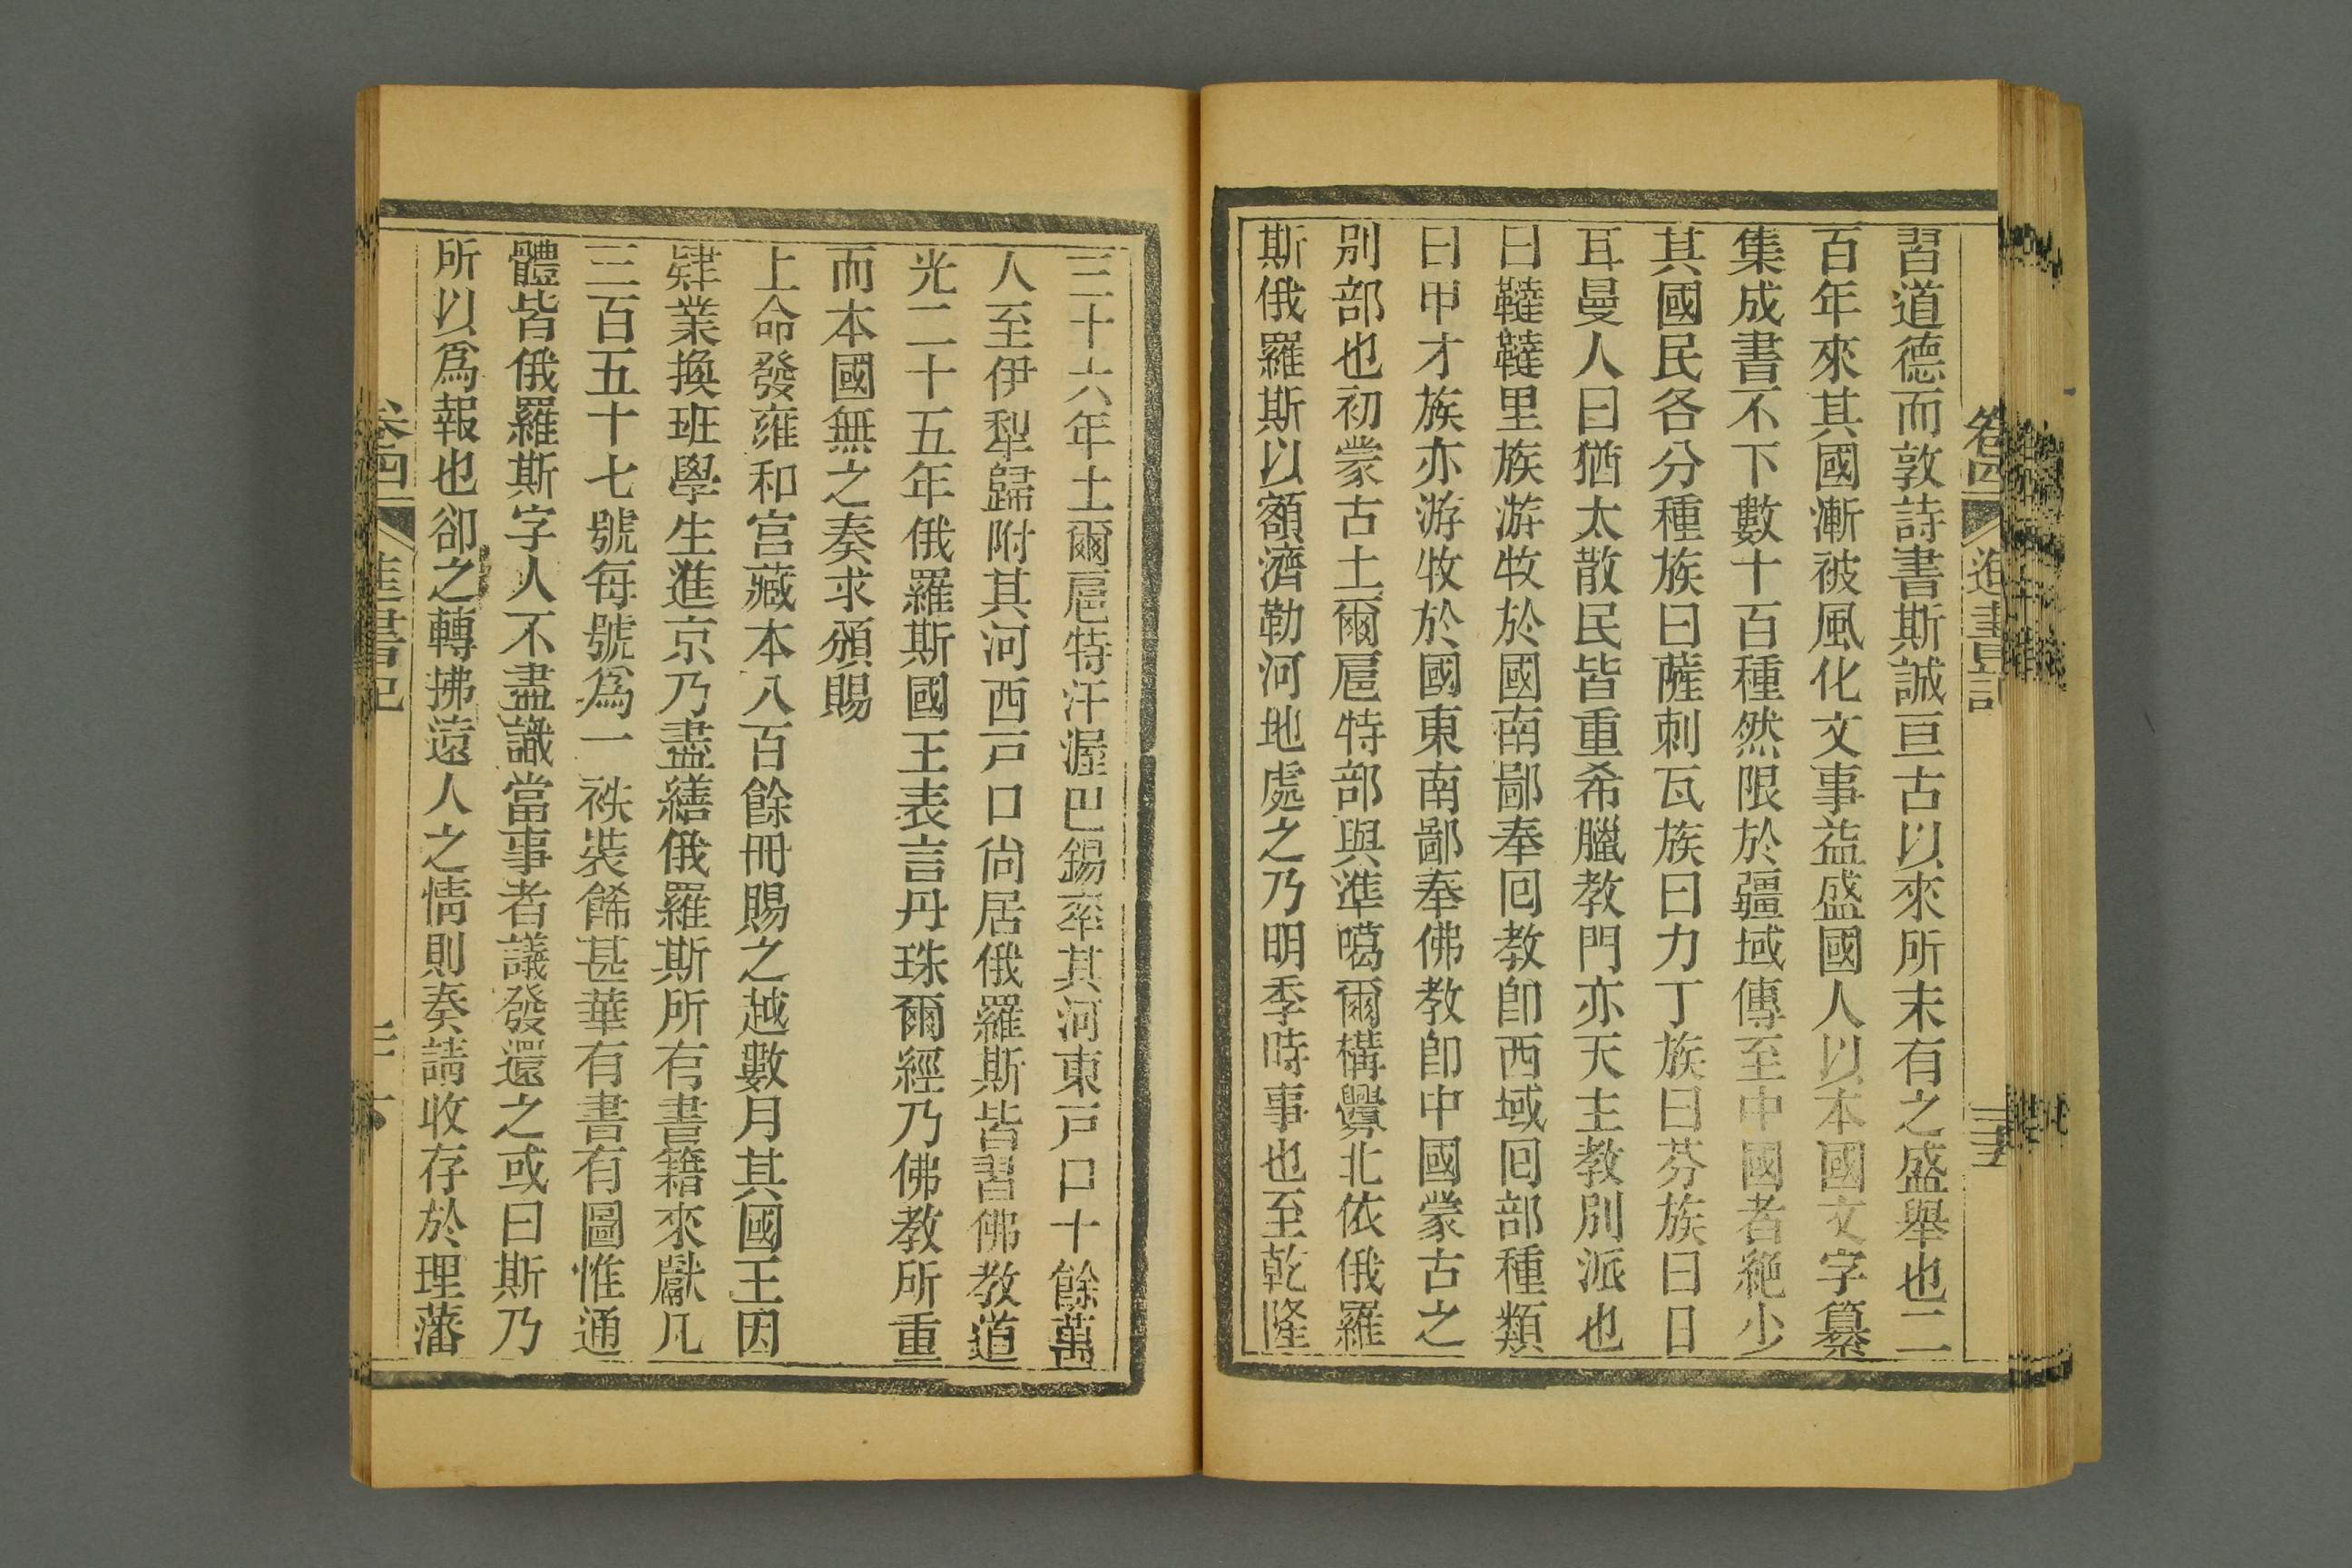 習道德而敦詩書斯誠亘古以來所未有之盛舉也二
百年來其國漸被風化文事益盛國人以本國文字纂
集成書不下數十百種然限於疆域傳至中國者絶少
其國民各分種族曰薩刺瓦族曰力丁族曰芬族曰日
耳曼人曰猶太散民皆重希臘教門亦天主教别派也
曰韃韃里族游牧於國南鄙奉囘教卽西域囘部種類
曰甲才族亦游牧於國東南鄙奉佛教卽中國蒙古之
别部也初蒙古土爾扈特部與準噶爾構釁北依俄羅
斯俄羅斯以額濟勒河地處之乃明季時事也至乾隆
三十六年土爾扈特汗渥巴錫率其河東戸口十餘萬
人至伊犁歸附其河西戸口尙居俄羅斯皆習佛教道
光二十五年俄羅斯國王表言丹珠爾經乃佛教所重
而本國無之奏求頒賜
上命發雍和宫藏本八百餘冊賜之越數月其國王因
肄業換班學生進京乃盡繕俄羅斯所有書籍來獻凡
三百五十七號每號爲一袟裝餙甚華有書有圖惟通
體皆俄羅斯字人不盡識當事者議發還之或曰斯乃
所以爲報也卻之轉拂遠人之情則奏請收存於理藩
卷四
進書記